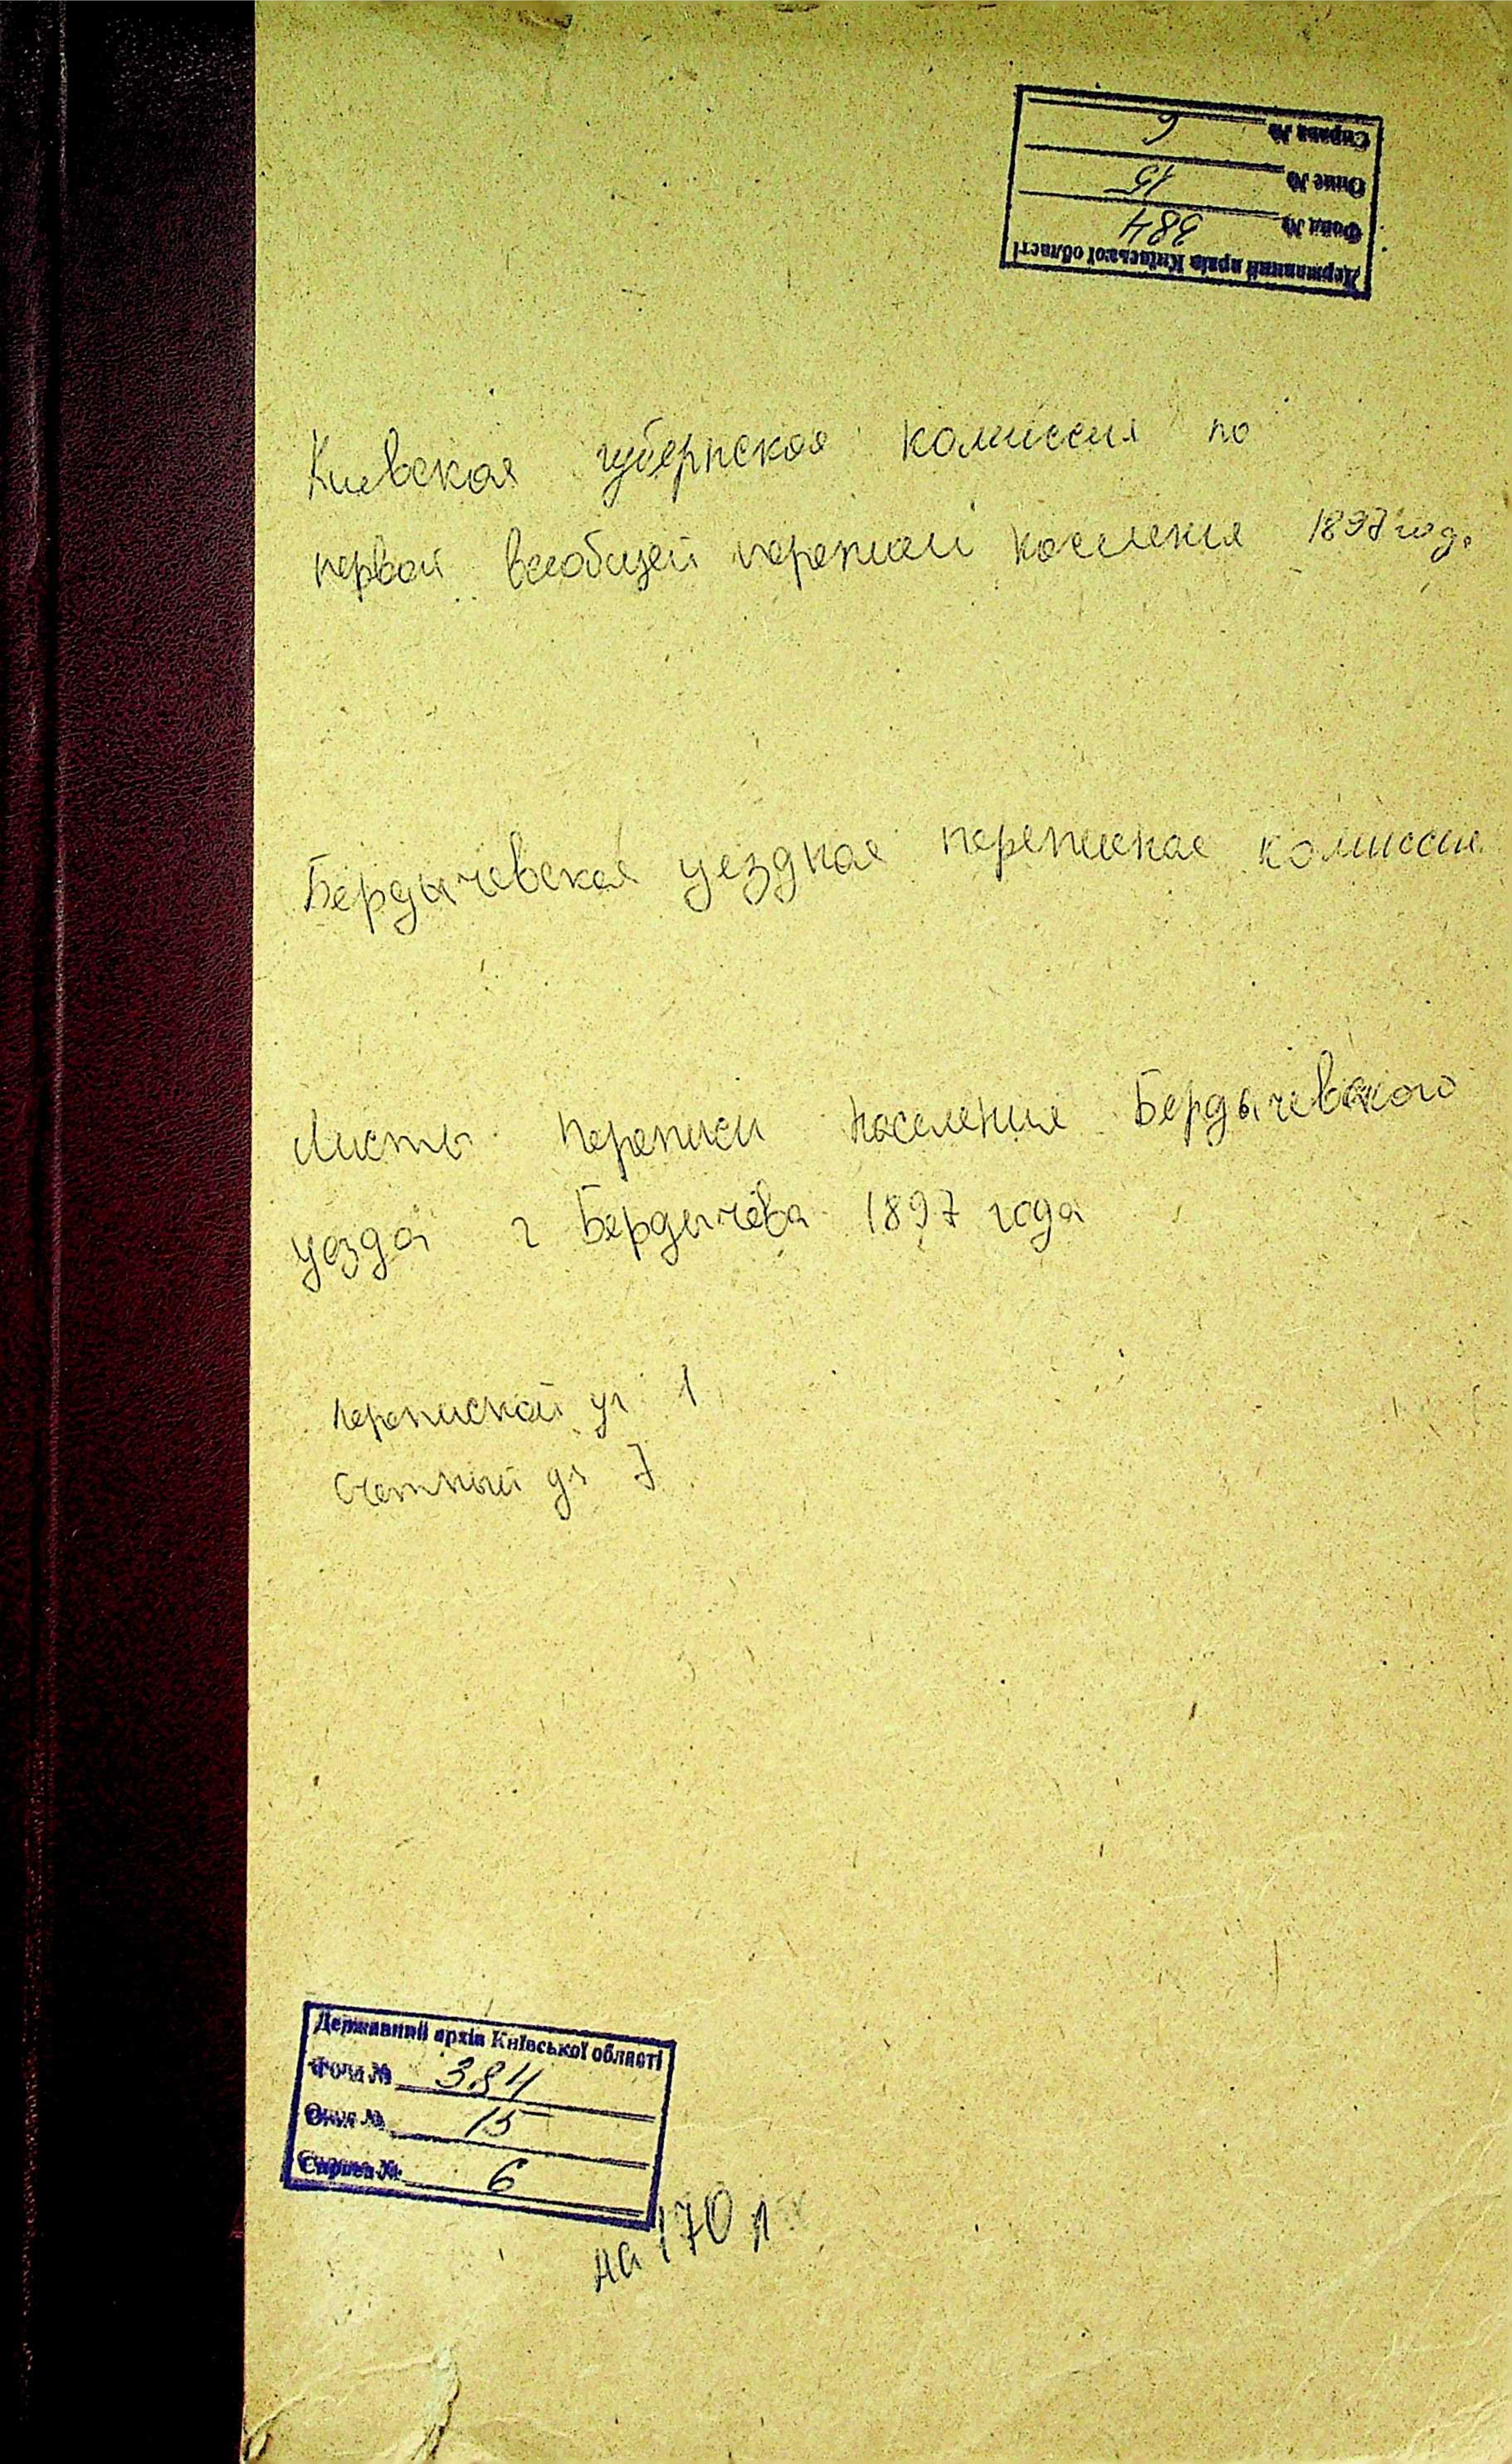 Державний архів Київської області
Фонд № 384
Опис № 15
Справа № 6
Киевская губернская комиссия по
первой всеобщей переписи населения 1897 год.
Бердычевская уездная переписная комиссия
Листы переписи населения Бердычевского
уезда г Бердычева 1897 года
переписной уч 1
Счетный уч 7
Державний архів Київської області
Фонд № 384
Опис № 15
Справа № 6
на 170 л